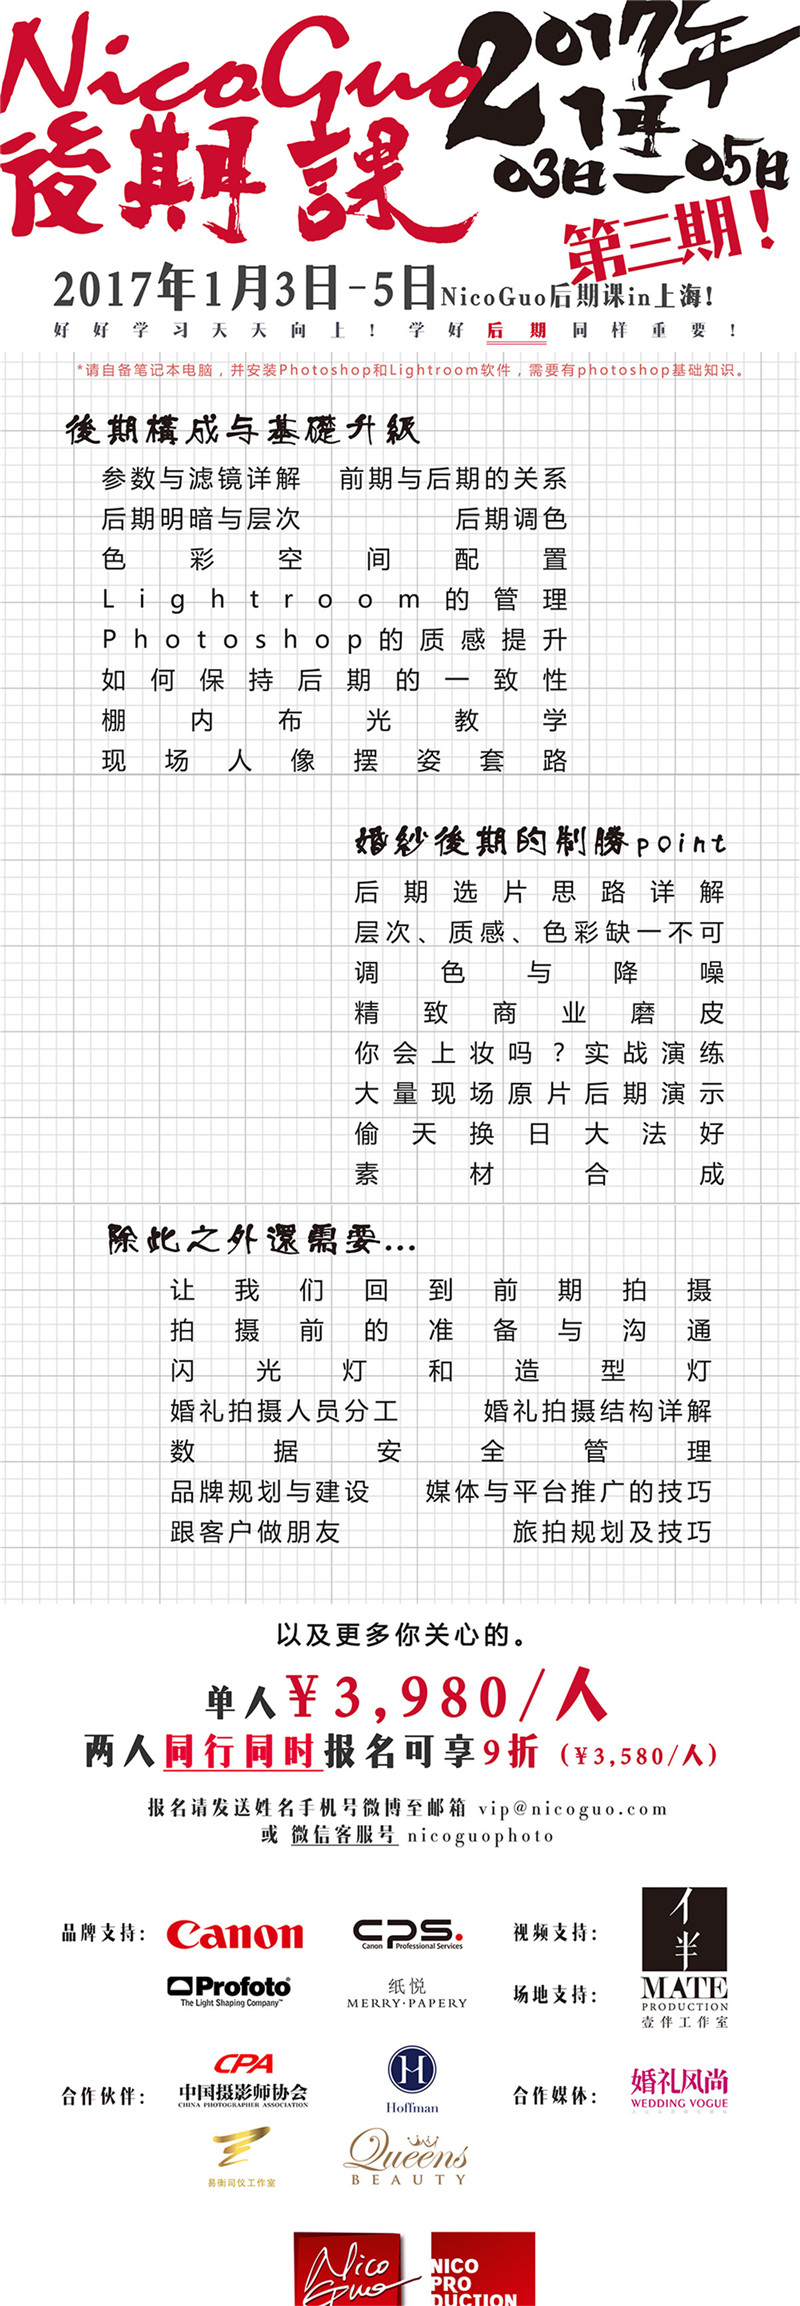 NicoGuo
後期課
2017年
1月
03日—05日
第三期！
2017年1月3日-5日NicoGuo后期课in上海!
好好学习天天向上！学好后期同样重要！
*请自备笔记本电脑，并安装Photoshop和Lightroom软件，需要有photoshop基础知识。
後期構成与基礎升級
参数与滤镜详解 前期与后期的关系
后期明暗与层次 后期调色
色彩空间配置
Lightroom的管理
Photoshop的质感提升
如何保持后期的一致性
棚内布光教学
现场人像摆姿套路
婚紗後期的制勝point
后期选片思路详解
层次、质感、色彩缺一不可
调色与降噪
精致商业磨皮
你会上妆吗？实战演练
大量现场原片后期演示
偷天换日大法好
素材合成
除此之外還需要...
让我们回到前期拍摄
拍摄前的准备与沟通
闪光灯和造型灯
婚礼拍摄人员分工 婚礼拍摄结构详解
数据安全管理
品牌规划与建设 媒体与平台推广的技巧
跟客户做朋友 旅拍规划及技巧
以及更多你关心的。
单人¥3,980/人
两人同行同时报名可享9折（¥3,580/人）
报名请发送姓名手机号微博至邮箱 vip@nicoguo.com
或 微信客服号 nicoguophoto
品牌支持：
Canon
CPS.
Canon Professional Services
Profoto
The Light Shaping Company™
纸悦
MERRY·PAPERY
视频支持：
场地支持：
MATE
PRODUCTION
壹伴工作室
合作伙伴：
CPA
中国摄影师协会
CHINA PHOTOGRAPHER ASSOCIATION
H
Hoffman
易衡司仪工作室
Queens
BEAUTY
合作媒体：
婚礼风尚
WEDDING VOGUE
Nico
Guo
NICO
PRO
DUCTION